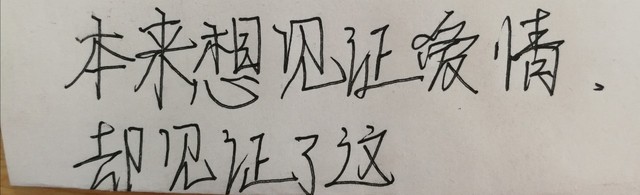 本来想见证爱情、
却见证了这